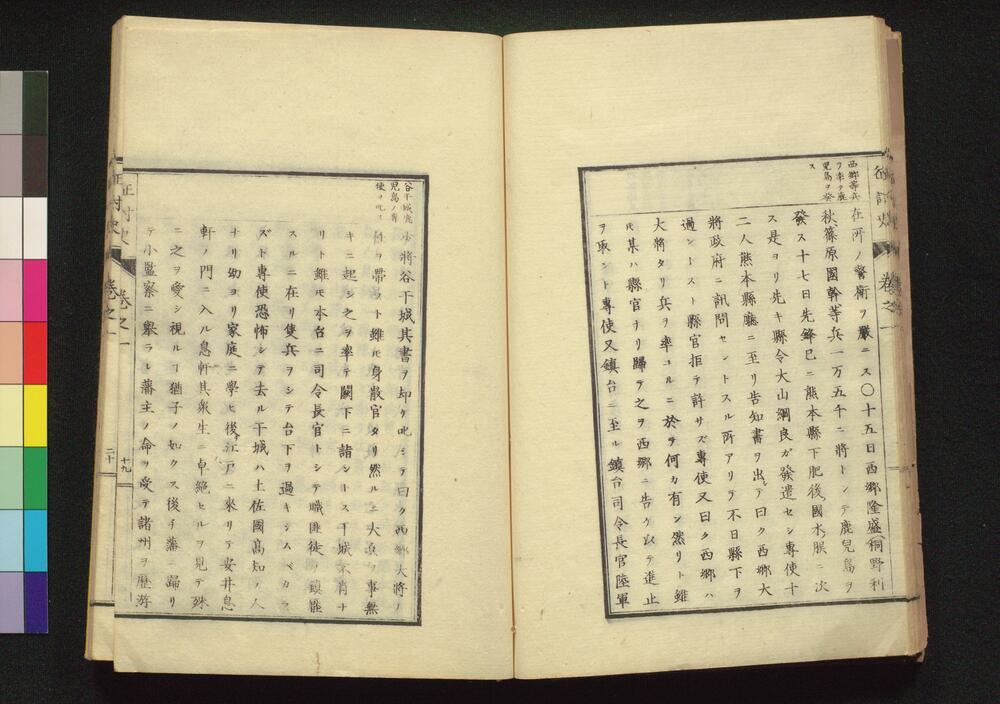 西郷等兵
ヲ率テ鹿
児島ヲ発
ス
在所ノ警衛ヲ嚴ニス〇十五日西郷隆盛桐野利
秋篠原國幹等兵一万五千ニ將トシテ鹿兒島ヲ
發ス十七日先鋒已ニ熊本縣下肥後國水俣ニ次
ス是ヨリ先キ縣令大山綱良ガ發遣セシ專使十
二人熊本縣廳ニ至リ告知書ヲ出シテ曰ク西郷大
將政府ニ訊問セントスル所アリテ不日縣下ヲ
過ントスト縣官拒テ許サズ專使又曰ク西郷ハ
大將タリ兵ヲ率ユルニ於ヲ何カ有ン然リト雖
モ某ハ縣官ナリ歸テ之ヲ西郷ニ告ケ以テ進止
ヲ取ント專使又鎮台ニ至ル鎮台司令長官陸軍
谷干城鹿
児島ノ專
使ヲ叱ス
少將谷干城其書ヲ却ケ叱シテ曰ク西郷大將ノ
任ヲ帶フト雖モ身散官タリ然ルニ大兵ヲ事無
キニ起シ之ヲ率テ闕下ニ詣ントス干城不肖ナ
リト雖モ本台ニ司令長官トシテ職匪徒ヲ鎮壓
スルニ在リ隻兵ヲシテ台下ヲ過キシムベカラ
ズト專使恐怖シテ去ル干城ハ土佐國高知ノ人
ナリ幼ヨリ家庭ニ學ヒ後江戸ニ來リテ安井息
軒ノ門ニ入ル息軒其衆生ニ卓絶セルヲ見テ殊
ニ之ヲ愛シ視ルヿ猶子ノ如クス後チ藩ニ歸リ
テ小監察ニ擧ラレ藩主ノ命ヲ受テ諸州ヲ歴游
卷之一
十九
卷之一
二十